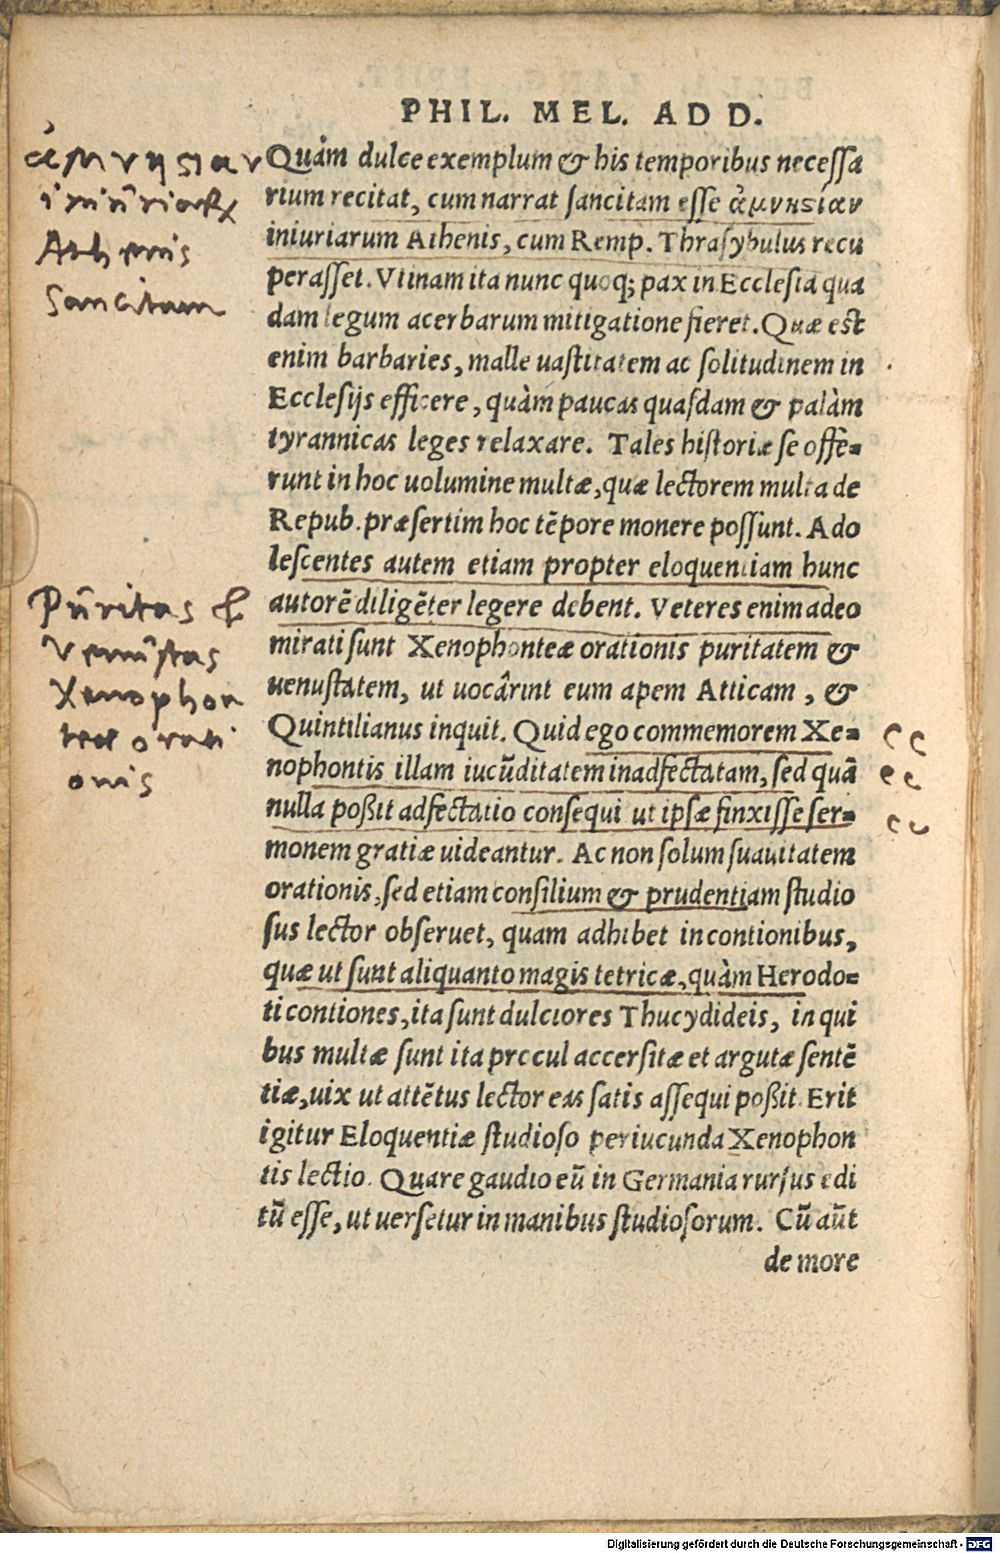 PHIL. MEL. AD D.
ἀμνησίαν
iniuriarꝝ
Athenis
sancitam
Quàm dulce exemplum & his temporibus necessa
rium recitat, cum narrat sancitam esse ἀμνησίαν
iniuriarum Athenis, cum Remp. Thrasybulus recu
perasset. Vtinam ita nunc quoq; pax in Ecclesia qua
dam legum acerbarum mitigatione fieret. Quæ est
enim barbaries, malle uastitatem ac solitudinem in
Ecclesijs efficere, quàm paucas quasdam & palàm
tyrannicas leges relaxare. Tales historiæ se offe-
runt in hoc uolumine multæ, quæ lectorem multa de
Repub. præsertim hoc tẽpore monere possunt. Ado
lescentes autem etiam propter eloquentiam hunc
autorẽ diligẽter legere debent. Veteres enim adeo
mirati sunt Xenophonteæ orationis puritatem &
uenustatem, ut uocârint eum apem Atticam, &
Quintilianus inquit. Quid ego commemorem Xe-
nophontis illam iucũditatem inadfectatam, sed quã
nulla poßit adfectatio consequi ut ipsæ finxisse ser-
monem gratiæ uideantur. Ac non solum suauitatem
orationis, sed etiam consilium & prudentiam studio
sus lector obseruet, quam adhibet in contionibus,
quæ ut sunt aliquanto magis tetricæ, quàm Herodo-
ti contiones, ita sunt dulciores Thucydideis, in qui
bus multæ sunt ita procul accersitæ et argutæ sentẽ
tiæ, uix ut attẽtus lector eas satis assequi poßit. Erit
igitur Eloquentiæ studioso periucunda Xenophon
tis lectio. Quare gaudio eũ in Germania rursus edi
tũ esse, ut uersetur in manibus studiosorum. Cũ aũt
de more
Puritas &
Venustas
Xenophon
teæ orati
onis
Digitalisierung gefördert durch die Deutsche Forschungsgemeinschaft - DFG